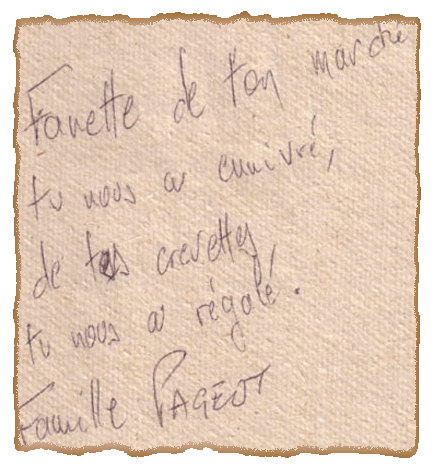 Fanette de ton marché
tu nous a ennivré,
de tes crevettes,
tu nous a régalé.
Famille PAGEOT